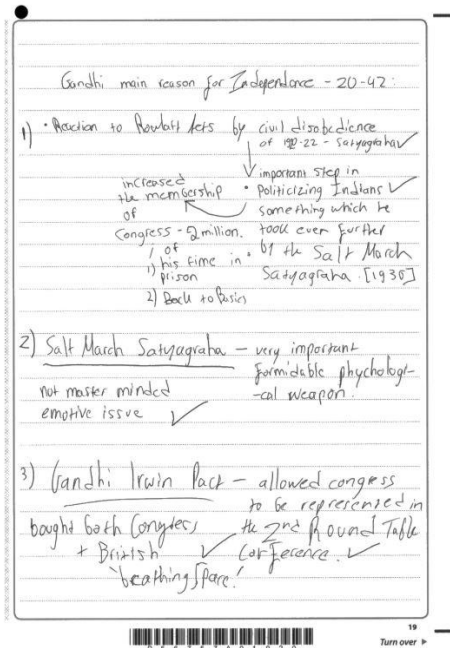 Gandhi main reason for Independence - 20-42:
1) • Reaction to Rowlatt Acts by civil disobedience
of 1920-22 - Satyagraha
important step in
• Politicizing Indians
something which he
took even further
by the Salt March
Satyagraha. [1930]
increased
the membership
of
Congress - 2 million.
of
1) his time in
prison
2) Back to Basics
2) Salt March Satyagraha - very important
formidable phychologi-
-cal weapon.
not master minded
emotive issue
3) Gandhi Irwin Pact - allowed congress
to be represented in
the 2nd Round Table
Conference.
bought both Congress
+ British
'breathing space.'
19
Turn over